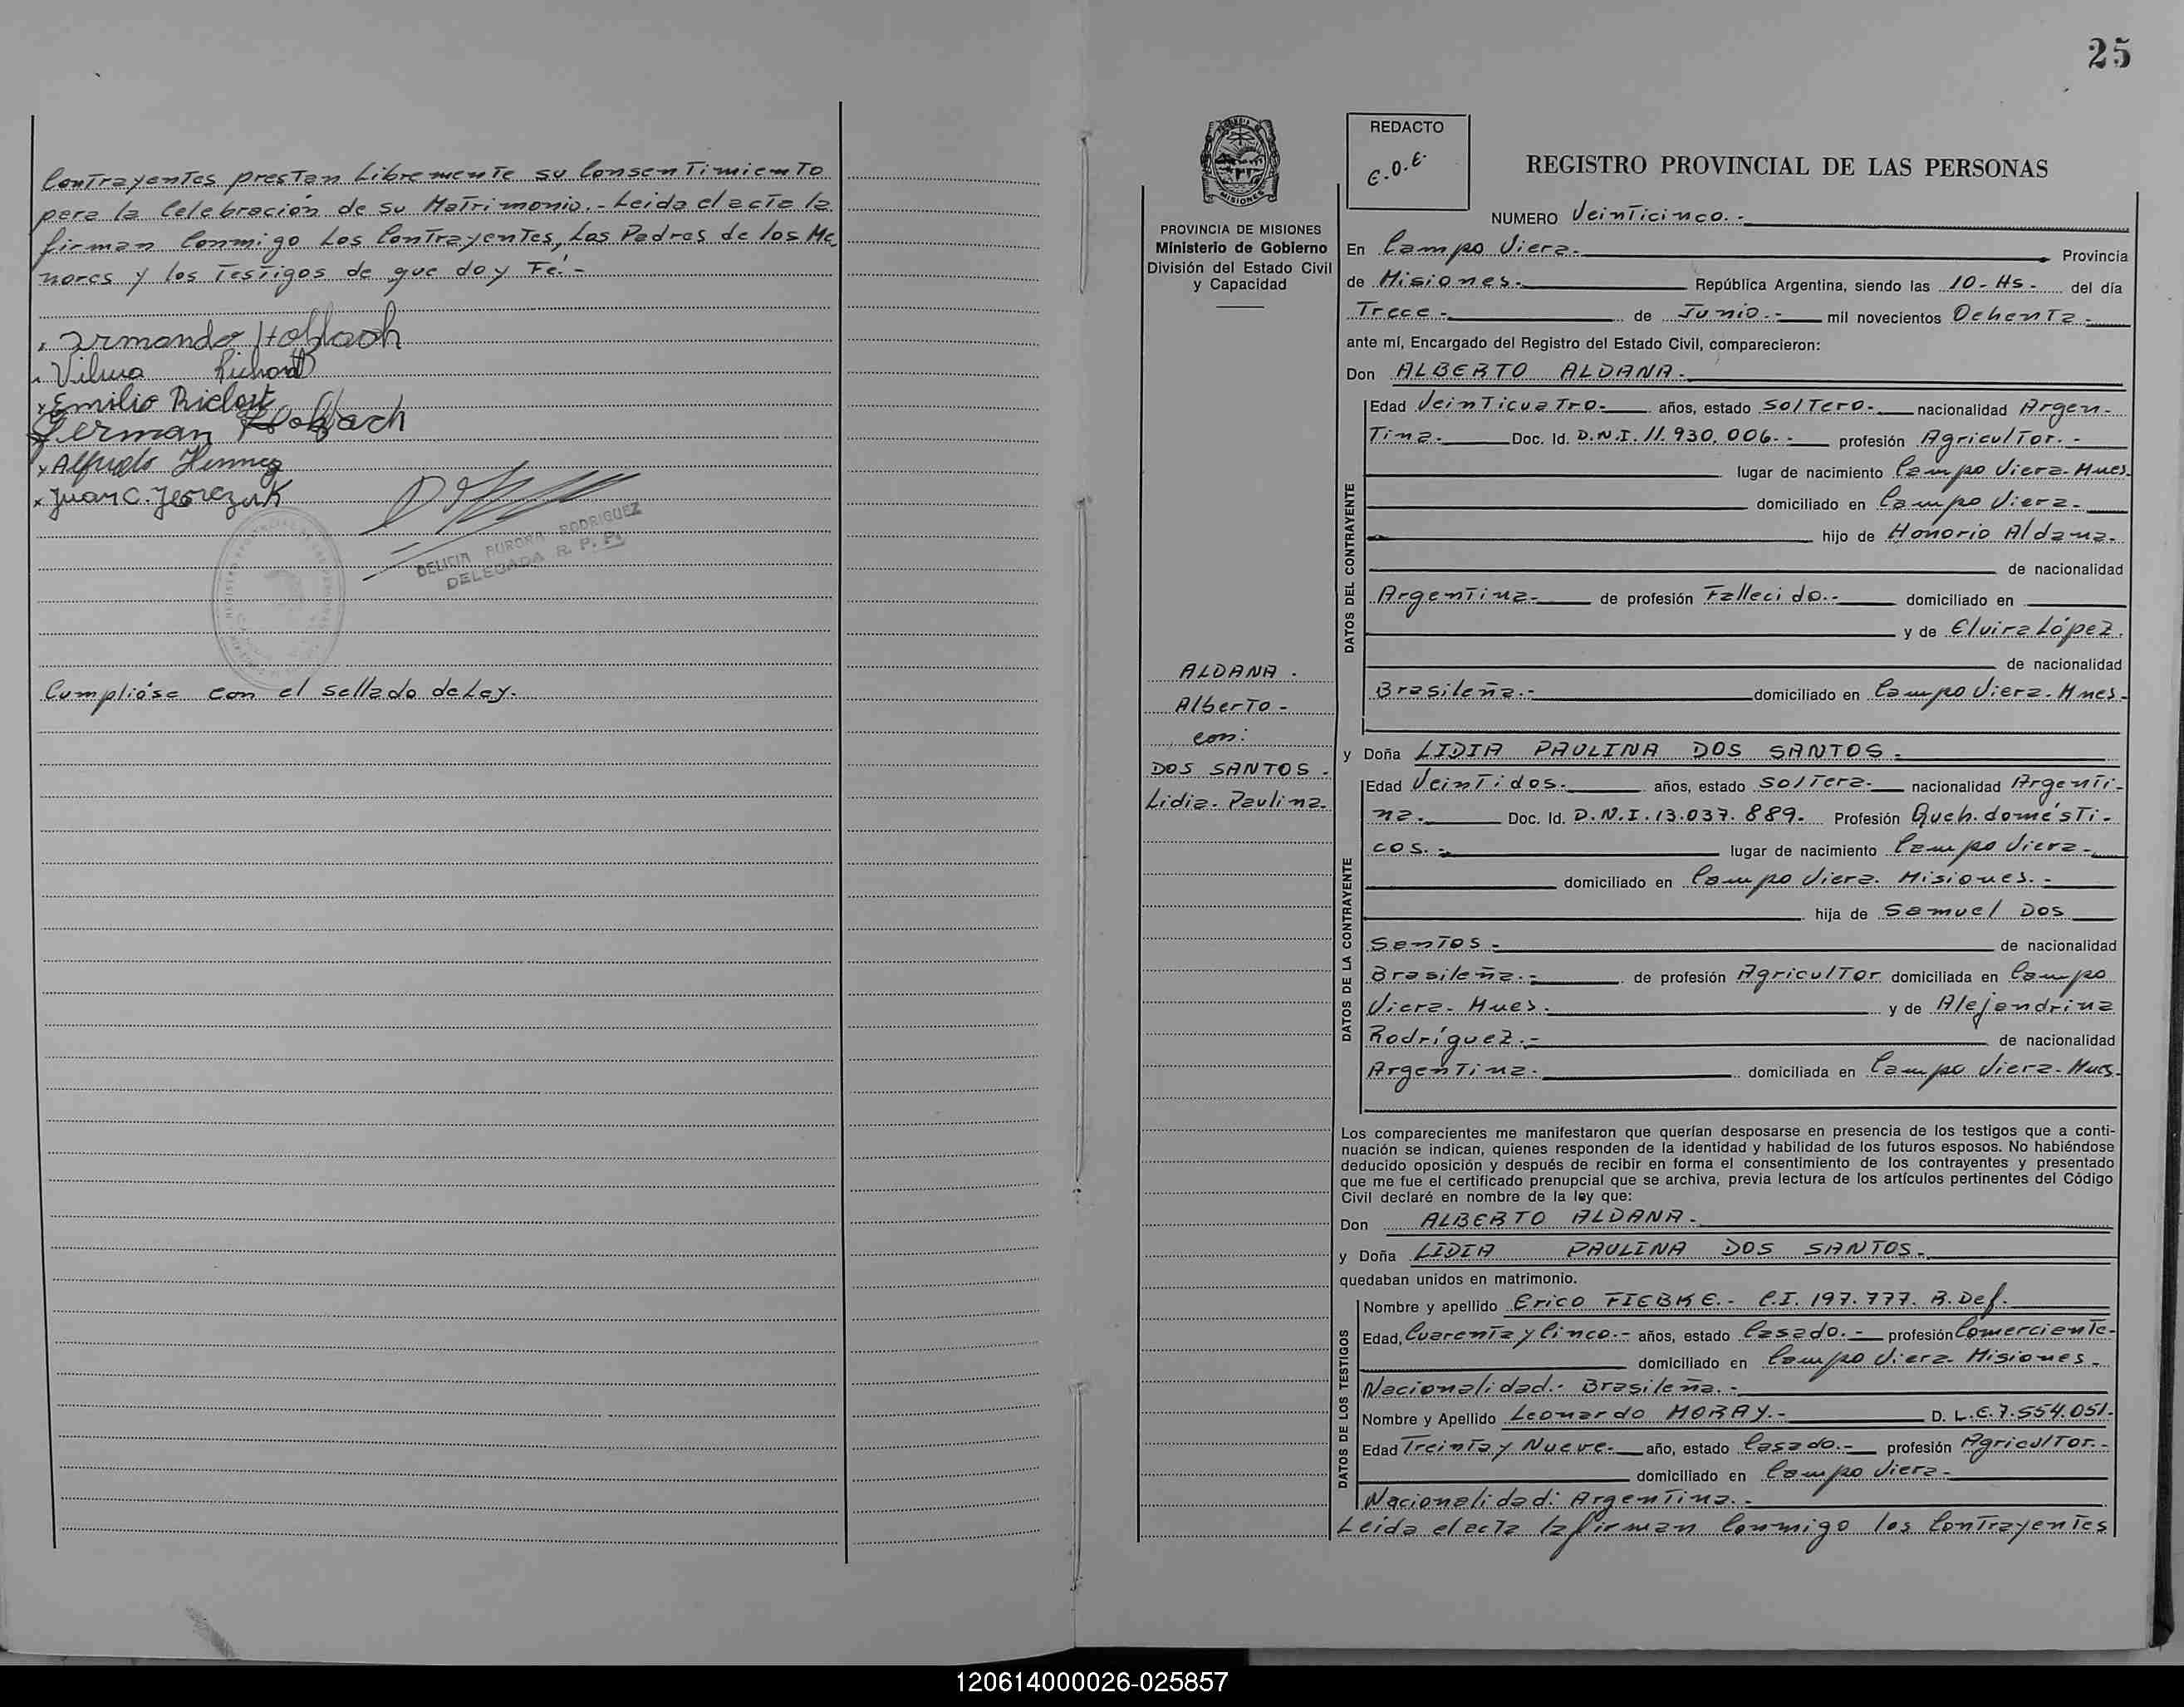 Contrayentes prestan Libremente su Consentimiento
para la Celebración de su Matrimonio.- Leida el acta la
firman Conmigo Los Contrayentes, Los Padres de los Me
nores y los Testigos de que doy Fé.-
Armando Holbach
Vilma Richart
Emilio Richart
German Holbach
Alfredo
Juan C. Jerezuk
DELICIA AURORA RODRIGUEZ
DELEGADA R. P. P.
Cumplióse con el sellado de Ley.-
25
REDACTO
C.O.E.
REGISTRO PROVINCIAL DE LAS PERSONAS
PROVINCIA DE MISIONES
Ministerio de Gobierno
División del Estado Civil
y Capacidad
ALDANA.
Alberto-
con:
DOS SANTOS.
Lidia-Paulina-
NUMERO Veinticinco.-
En Campo Viera.- Provincia
de Misiones.- República Argentina, siendo las 10-Hs- del día
Trece- de Junio.- mil novecientos Ochenta-
ante mí, Encargado del Registro del Estado Civil, comparecieron:
Don ALBERTO ALDANA.-
DATOS DEL CONTRAYENTE
Edad Veinticuatro- años, estado Soltero- nacionalidad Argen-
tina- Doc. Id. D.N.I. 11.930.006.- profesión Agricultor.-
lugar de nacimiento Campo Viera-Mnes.
domiciliado en Campo Viera-
hijo de Honorio Aldana.
de nacionalidad
Argentina- de profesión Fallecido.- domiciliado en
y de Elvira López.
de nacionalidad
Brasileña.- domiciliado en Campo Viera-Mnes-
y Doña LIDIA PAULINA DOS SANTOS.-
DATOS DE LA CONTRAYENTE
Edad Veintidos.- años, estado Soltera- nacionalidad Argenti-
na.- Doc. Id. D.N.I. 13.037.889- Profesión Queh. domésti-
cos.- lugar de nacimiento Campo Viera-
domiciliado en Campo Viera. Misiones.-
hija de Samuel Dos
Santos.- de nacionalidad
Brasileña.- de profesión Agricultor domiciliada en Campo
Viera- Mnes. y de Alejandrina
Rodríguez.- de nacionalidad
Argentina- domiciliada en Campo Viera-Mnes.
Los comparecientes me manifestaron que querían desposarse en presencia de los testigos que a conti-
nuación se indican, quienes responden de la identidad y habilidad de los futuros esposos. No habiéndose
deducido oposición y después de recibir en forma el consentimiento de los contrayentes y presentado
que me fue el certificado prenupcial que se archiva, previa lectura de los artículos pertinentes del Código
Civil declaré en nombre de la ley que:
Don ALBERTO ALDANA-
y Doña LIDIA PAULINA DOS SANTOS-
quedaban unidos en matrimonio.
DATOS DE LOS TESTIGOS
Nombre y apellido Erico FIEBKE.- C.I. 197.777. R.Def.
Edad, Cuarenta y Cinco.- años, estado Casado.- profesión Comerciante-
domiciliado en Campo Viera- Misiones-
Nacionalidad.- Brasileña.-
Nombre y Apellido Leonardo MORAY.- D. L.E. 7.554.051-
Edad Treinta y Nueve.- año, estado Casado.- profesión Agricultor.-
domiciliado en Campo Viera-
Nacionalidad: Argentina.-
Leida el acta la firman Conmigo los Contrayentes
120614000026-025857